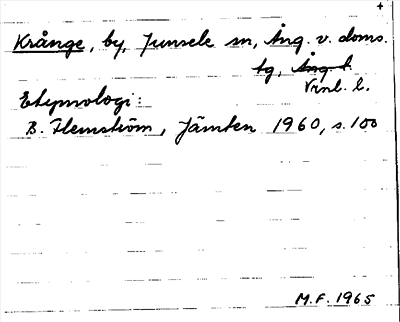 +
Krånge, by, Junsele sn, Ång. v. doms.
tg, Ång. l.
Vrnl. l.
Etymologi:
B. Flemström, Jämten 1960, s. 100
M.F. 1965